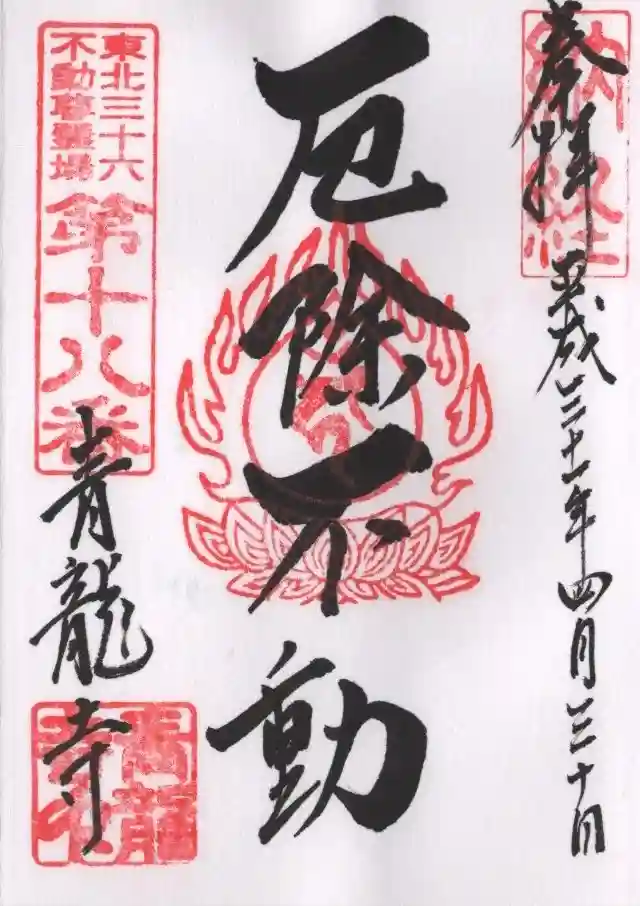 奉拝
平成三十一年四月三十日
納経
厄除不動
東北三十六
不動尊霊場
第十八番
青龍寺